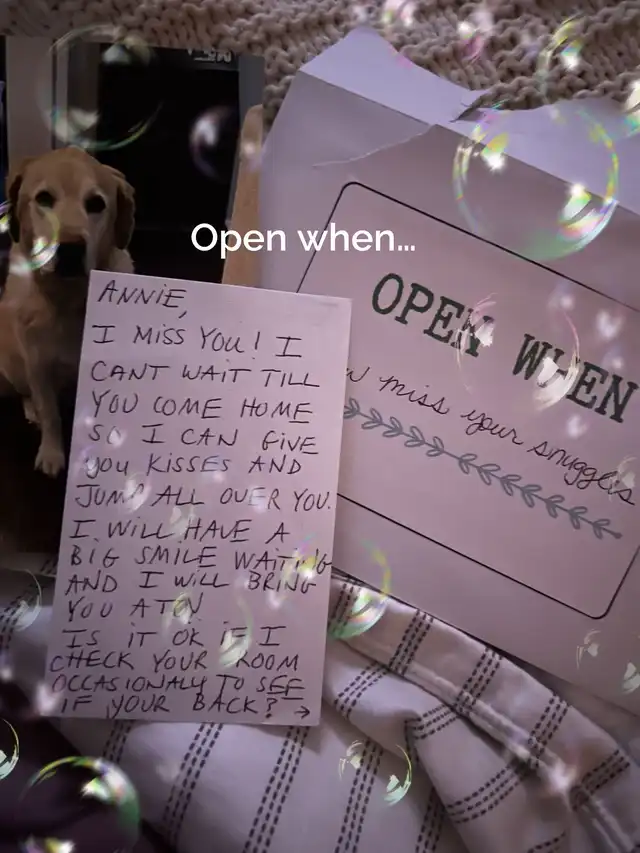 Open when...
ANNIE,
I MISS YOU! I
CANT WAIT TILL
YOU COME HOME
SO I CAN GIVE
YOU KISSES AND
JUMP ALL OVER YOU.
I WILL HAVE A
BIG SMILE WAITING
AND I WILL BRING
YOU A TOY
IS IT OK IF I
CHECK YOUR ROOM
OCCASIONALY TO SEE
IF YOUR BACK? →
OPEN WHEN
miss your snuggles